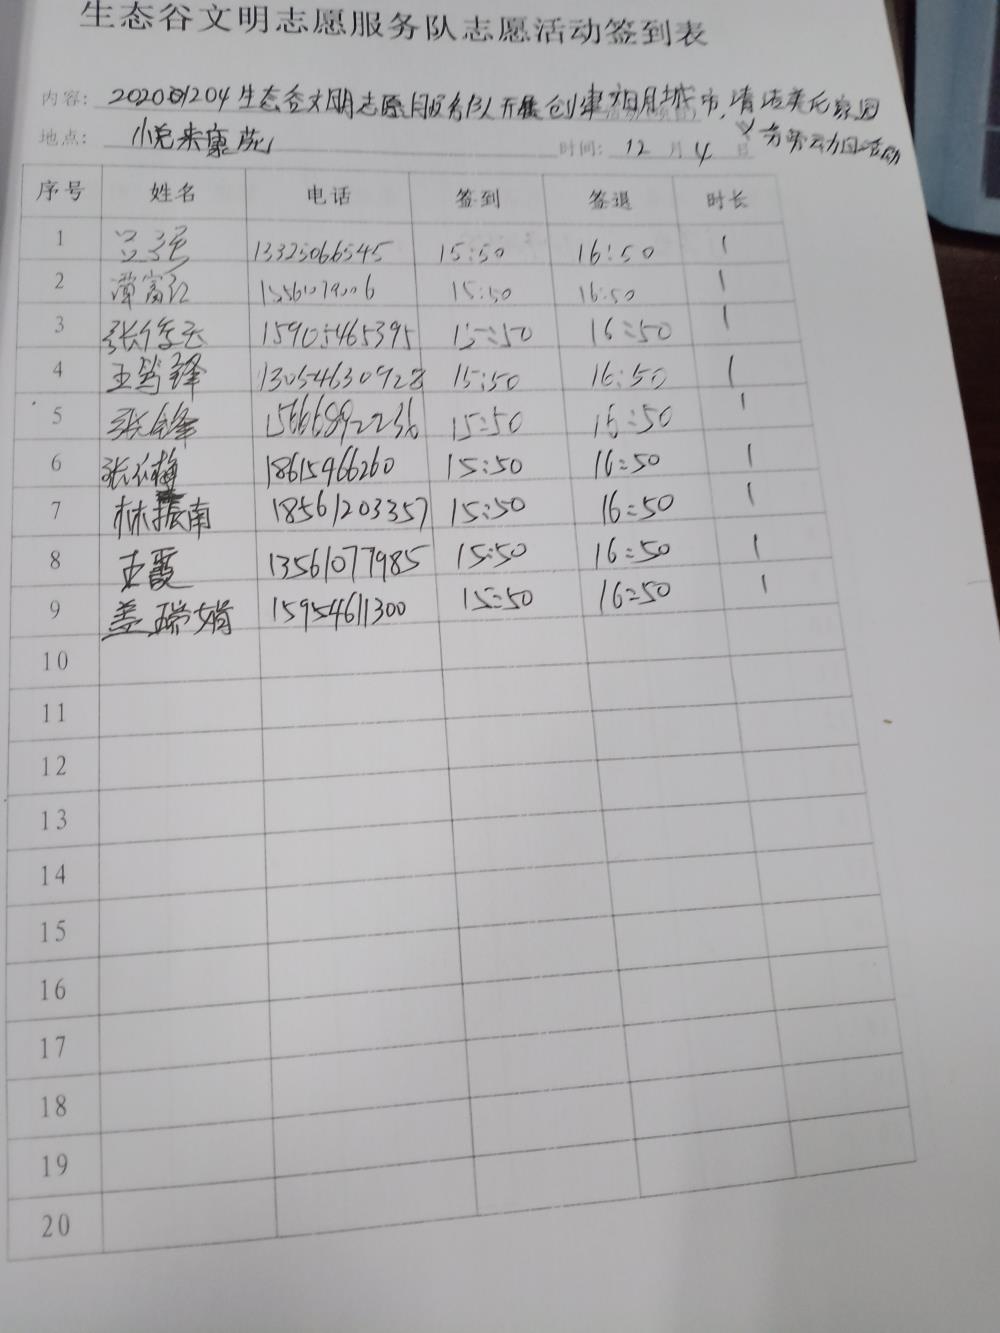 生态谷文明志愿服务队志愿活动签到表
内容: 20201204生态谷文明志愿服务队开展创建文明城市,清洁美化家园
义务劳动日活动
地点: 悦来康苑 时间: 12 月 4 日
序号 姓名 电话 签到 签退 时长
1 吕强 13325066545 15:50 16:50 1
2 谭富红 15:50 16:50 1
3 15905465395 15:50 16:50 1
4 王笃锋 13054630928 15:50 16:50 1
5 15666892236 15:50 16:50 1
6 18615466260 15:50 16:50 1
7 林振南 18561203357 15:50 16:50 1
8 王霞 13561077985 15:50 16:50 1
9 盖瑞娟 15954611300 15:50 16:50 1
10
11
12
13
14
15
16
17
18
19
20